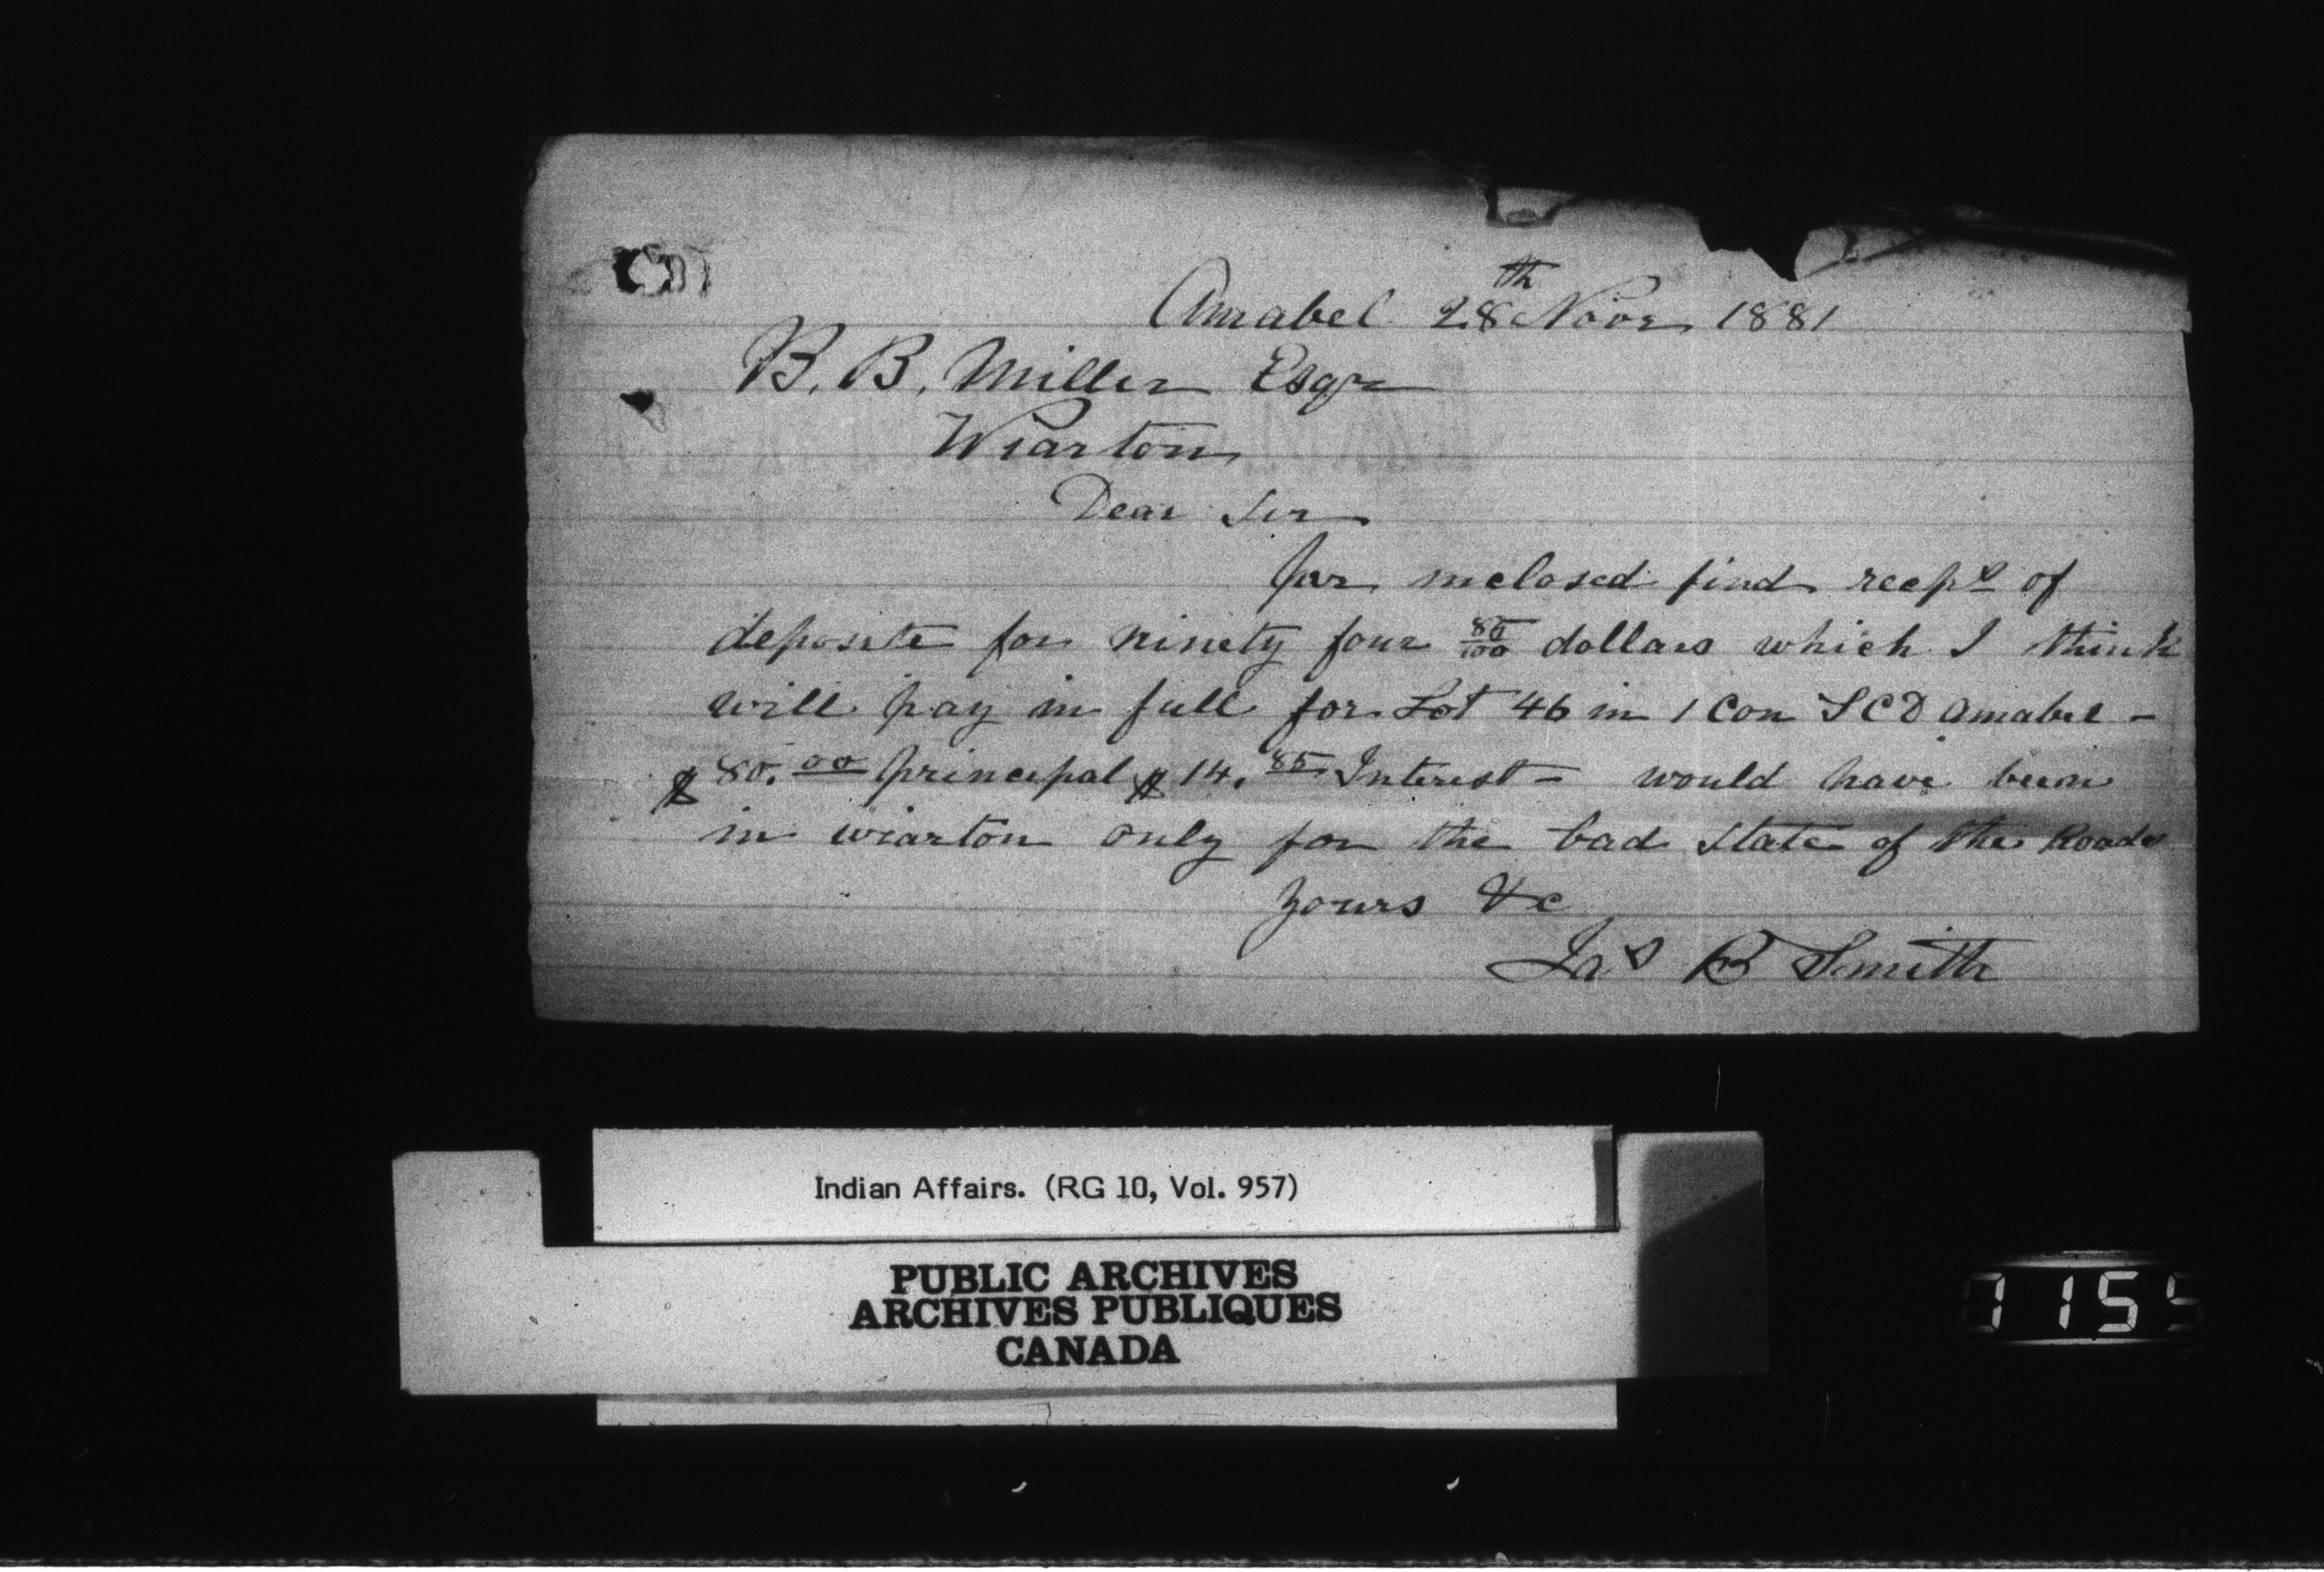 Amabel 28th Novr 1881
B. B. Miller Esqr
Wiarton
Dear Sir
for inclosed find recept of
deposite for ninety four 85/100 dollars which I think
will pay in full for Lot 46 in 1 Con SCD Amabel -
$80.00 principal $14.85 Interest - would have been
in wiarton only for the bad State of the Roads
yours &c
Jas B Smith
Indian Affairs. (RG 10, Vol. 957)
PUBLIC ARCHIVES
ARCHIVES PUBLIQUES
CANADA
1155